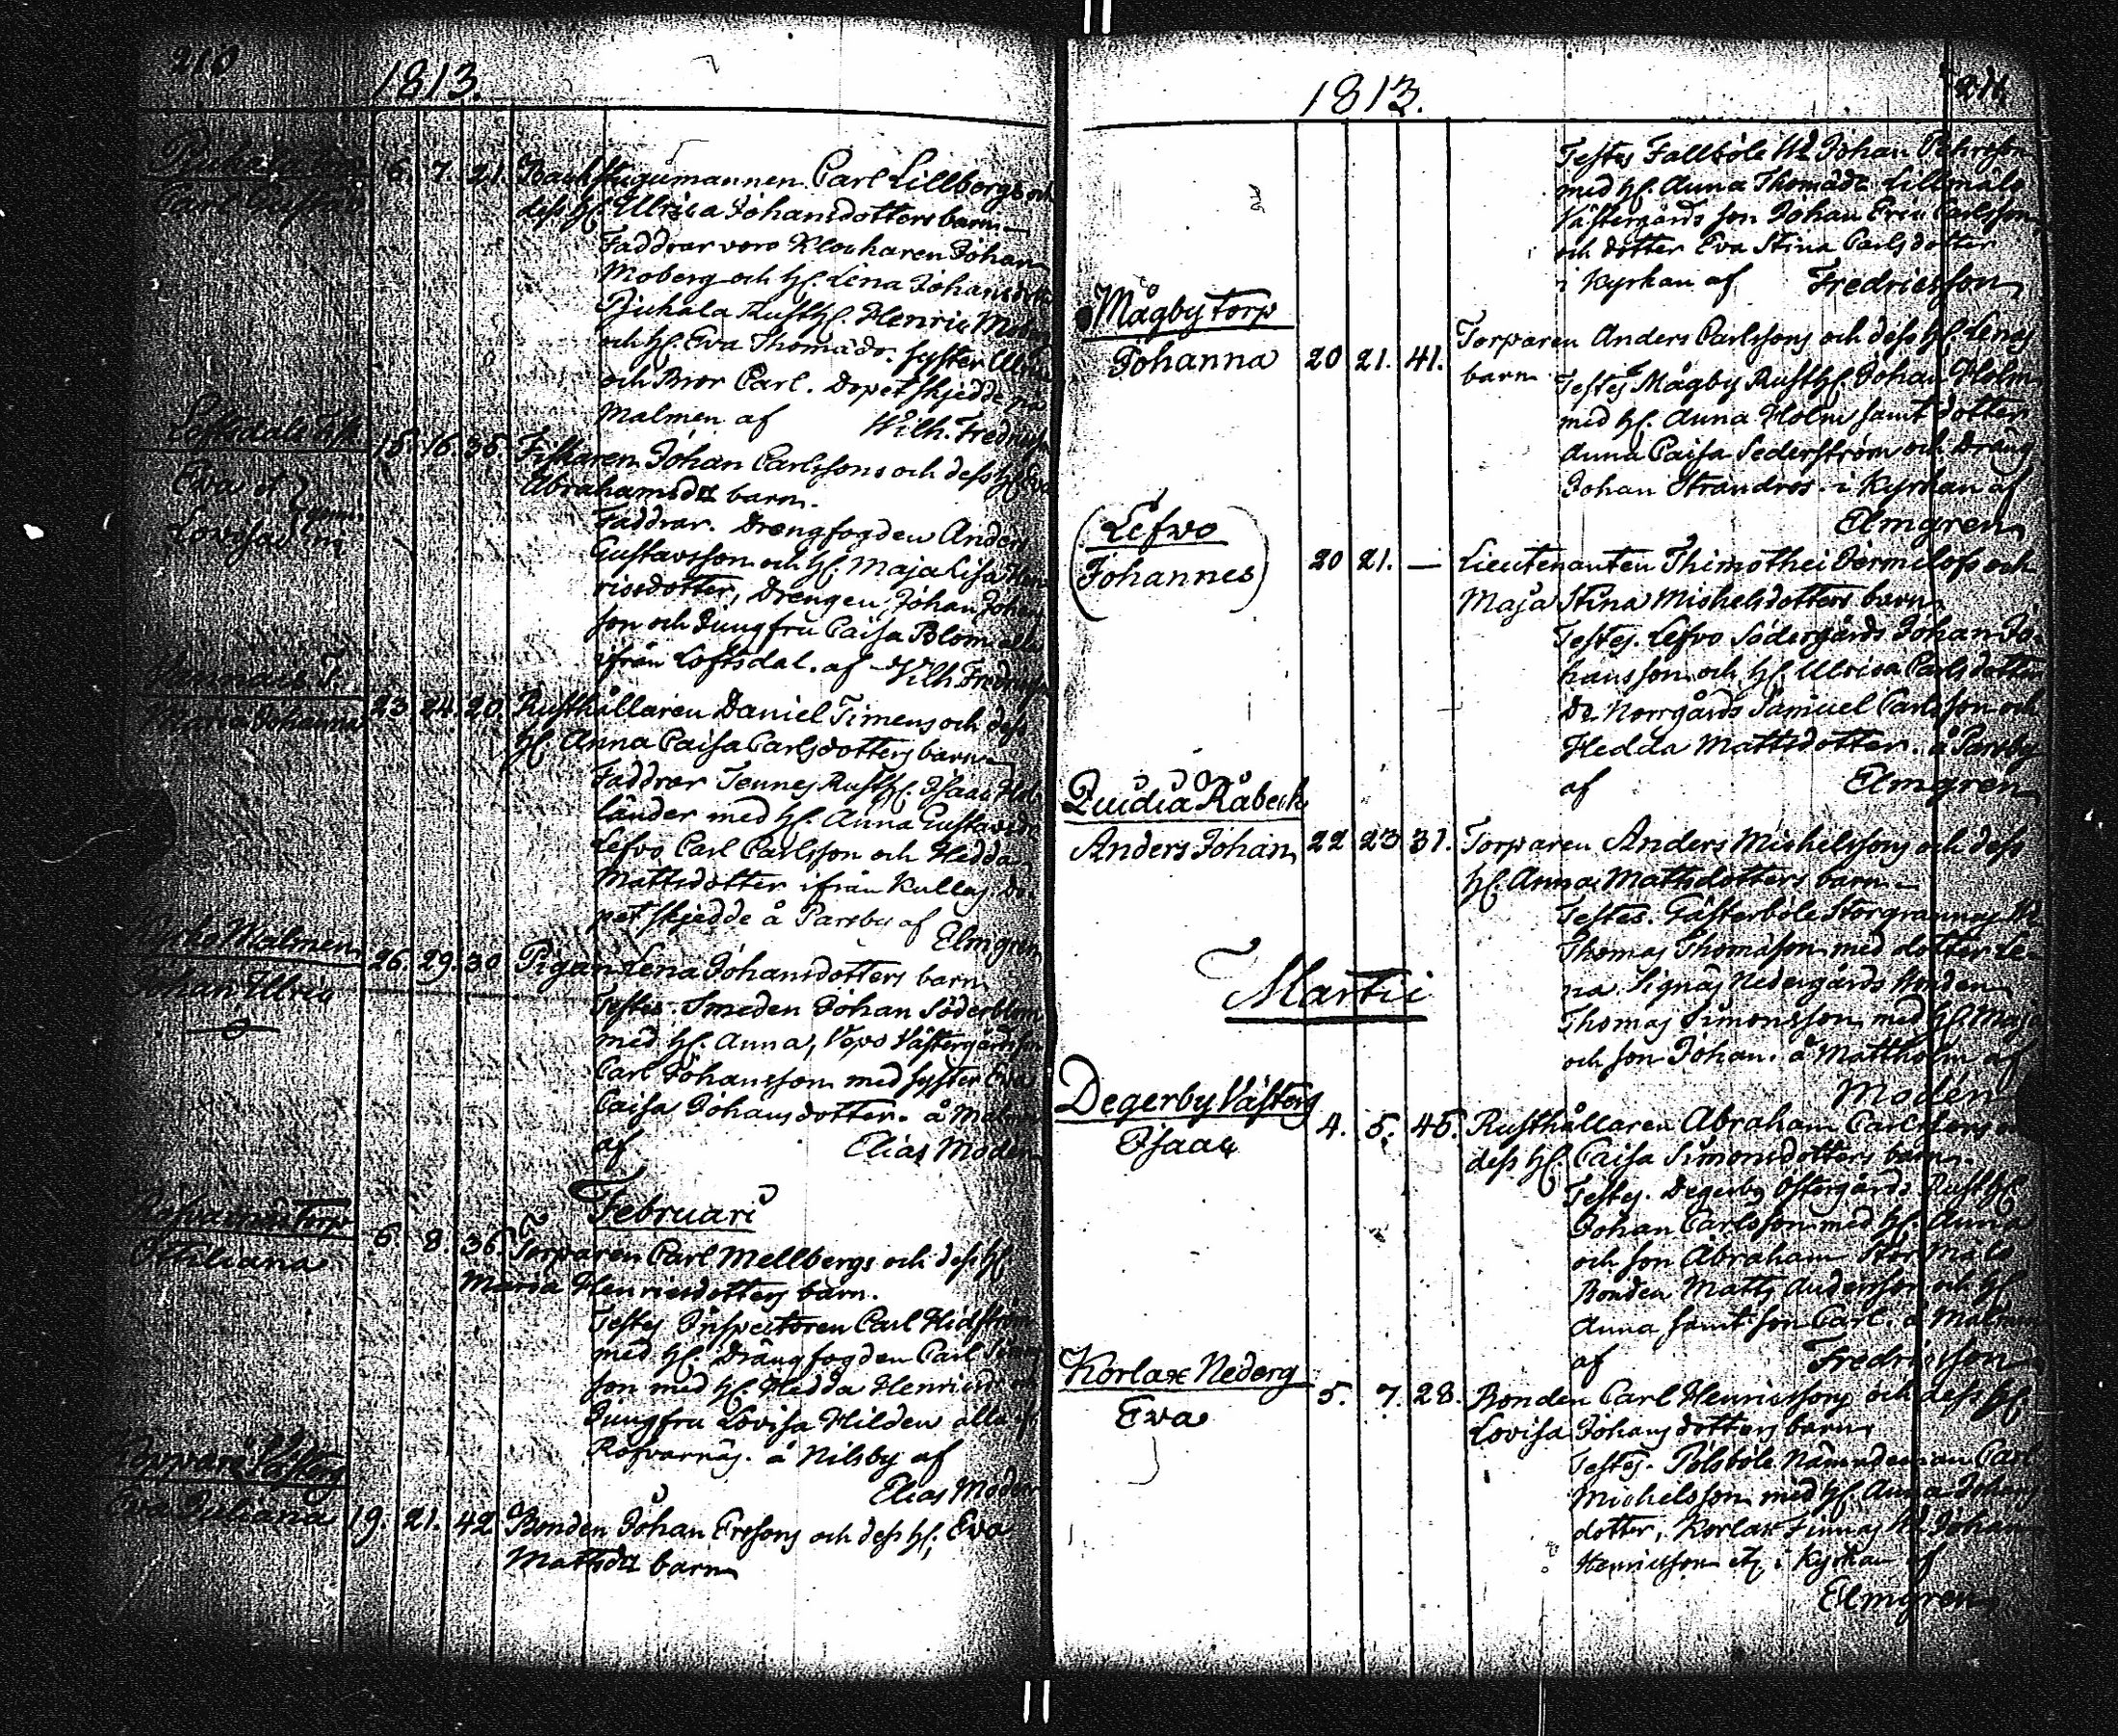 210
1813.
6. 7. 21. Backstugumannen Carl Lillbergs och
Carl Gustaf
dess H. Ulrica Johansdotters barn
Faddrar voro Klockaren Johan
Moberg och H. Lena Johansdotter
RustH. Henric
och H. Eva Thomasdr. Syster
och Bror Carl. Dopet skjedde på
Malmen af Wilh. Fredricss
Loftsdals
15. 16. 35. Fiskaren Johan Carlssons och dess H. Eva
Abrahamsdr barn.
Eva et
Lovisa
Faddrar. Drengfogden Anders
Gustavsson och H. Maja Lisa Hen
ricsdotter, Drengen Johan Johans
son och Jungfru Caisa Blom alla
ifrån Loftsdal. af Wilh. Fredricss
Maria Johanna
23. 24. 20. Rusthållaren Daniel Simens och dess
H. Anna Caisa Carlsdotters barn
Faddrar Tennes RustH. Isaac
länder med H. Anna Gustavsdr
Lefvo Carl Carlsson och Hedda
Mattsdotter ifrån Kullas. do-
pet skjedde å Parsby af
Elmgren
Malmen
26. 29. 30 Pigan Lena Johansdotters barn
Johan Ulric
Testes. Smeden Johan Söderblom
med H. Anna, Västergårds son
Carl Johansson med syster Eva
Caisa Johansdotter. å Malmen
af Elias Modén
Februari
Rofvarnäs Torp
6. 8. 36. Torparen Carl Mellbergs och dess H.
Maria Henricsdotters barn.
Testes Inspectoren Carl Hidström
med H. Drängfogden Carl
son med H. Hedda Henricsdr och
Jungfru Lovisa Hilden alla
Rofvarnäs. å Nilsby af
Elias Modén
Västerg
Eva Juliana 19. 21. 42 Bonden Johan Ersons och dess H. Eva
Mattsdr barn
1813.
211.
Testes Fallböle Johan
med H. Anna Thomasdr Lillmälö
Västergårds son Johan Eric Carlsson
och dotter Eva Stina Carlsdotter
i Kyrkan af Fredricsson
Mågby torp
Johanna 20 21. 41. Torparen Anders Carlssons och dess H. Lenas
barn
Testes Mågby RustH. Johan Holm
med H. Anna Holm samt dotter
Anna Caisa Sederström och dräng
Johan Strandros. i Kyrkan af
Elmgren
(Lefvo
Johannes) 20 21. — Lieutenanten Thimothei Jermilofs och
Maja Stina Michelsdotters barn
Testes. Lefvo Södergårds Johan Jo-
hansson och H. Ulrica Carlsdotter
Do Norrgårds Samuel Carlsson och
Hedda Mattsdotter. å Parsby
af Elmgren
Qvidia Råback
Anders Johan 22 23 31. Torparen Anders Michelssons och dess
H. Anna Mattsdotters barn
Testes. Gästerböle Storgrannas
Thomas Thomasson med dotter Le-
na. Signäs Nedergårds Bonden
Thomas Simonsson med H. Maja
och son Johan. å Mattholm af
Modén
Martii
Degerby Västerg
Isaac 4. 5. 45. Rusthållaren Abraham Carlssons och
dess H. Caisa Simonsdotters barn.
Testes. Degerby Östergårds RustH.
Johan Carlsson med H. Anna
och son Abraham Stormälö
Bonden Matts Andersson och H.
Anna samt son Carl. å Malmen
af Fredricsson
Korlax Nederg
Eva 5. 7. 28. Bonden Carl Henricssons och dess H.
Lovisa Johansdotters barn
Testes. Pölsböle Nämndeman Carl
Michelsson med H. Anna Johans
dotter, Korlax Finnas Johan
Henricsson etc. i Kyrkan af
Elmgren